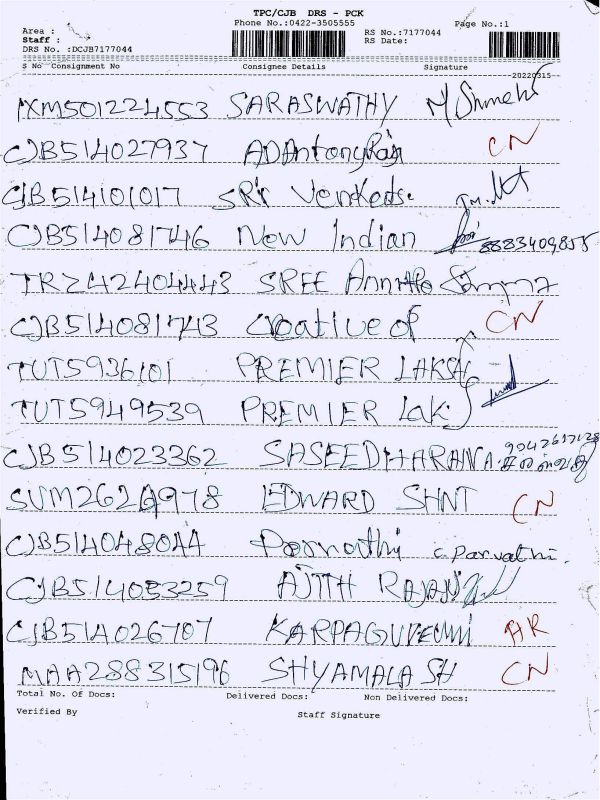 TPC/CJB DRS - PCK
Phone No.:0422-3505555 Page No.:1
Area :
Staff :
RS No.:7177044
DRS No. :DCJB7177044 RS Date:
S No Consignment No Consignee Details Signature
20220315
IXM501224553 SARASWATHY
CJB514027937 ADAntonyRaj CN
CJB514101017 SRi Venkedse
CJB514081746 New Indian 8883409855
TRZ42404443 SREE
CJB514081743 Creative of CN
TUT5936101 PREMIER LAKSH
TUT5949539 PREMIER Lak
CJB514023362 SASEEDHARANA 9042617128
SUM26249978 EDWARD SHNT CN
CJB514048044 Parvathi C. Parvathi.
CJB514083259 AJITH RAJAN
CJB514026707 AR
MAA288315196 SHYAMALA SH CN
Total No. Of Docs: Delivered Docs: Non Delivered Docs:
Verified By Staff Signature